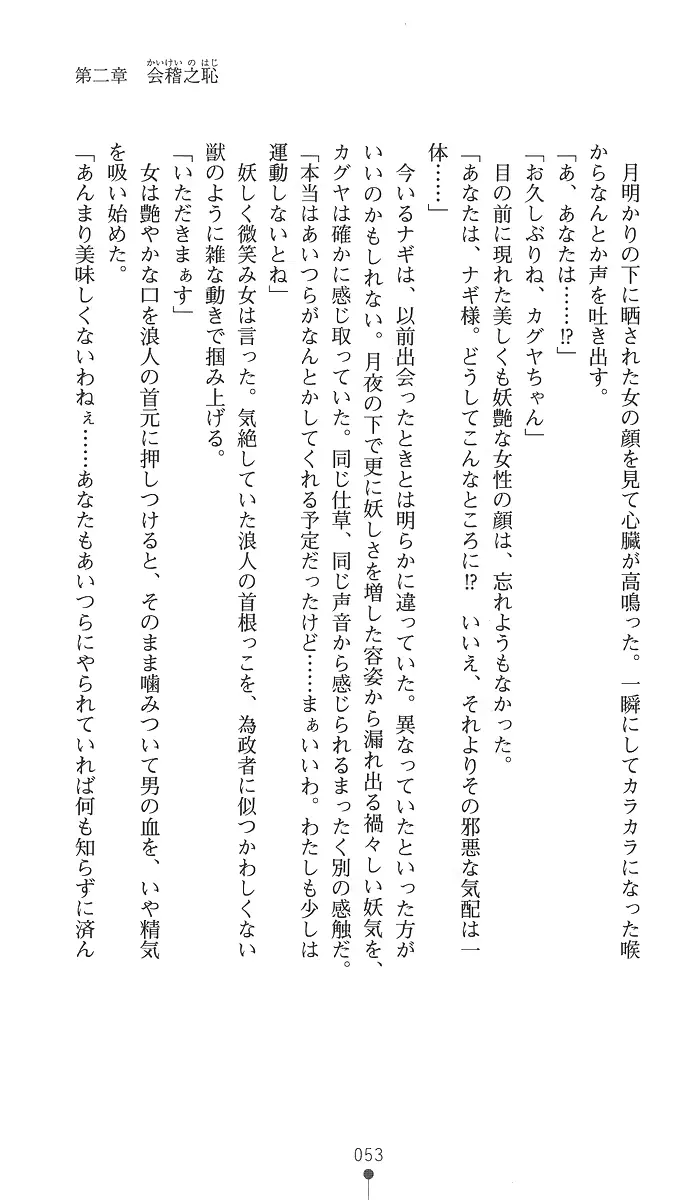 第二章　会稽之恥
かいけいのはじ
月明かりの下に晒された女の顔を見て心臓が高鳴った。一瞬にしてカラカラになった喉
からなんとか声を吐き出す。
「あ、あなたは……⁉」
「お久しぶりね、カグヤちゃん」
目の前に現れた美しくも妖艶な女性の顔は、忘れようもなかった。
「あなたは、ナギ様。どうしてこんなところに⁉　いいえ、それよりその邪悪な気配は一
体……」
今いるナギは、以前出会ったときとは明らかに違っていた。異なっていたといった方が
いいのかもしれない。月夜の下で更に妖しさを増した容姿から漏れ出る禍々しい妖気を、
カグヤは確かに感じ取っていた。同じ仕草、同じ声音から感じられるまったく別の感触だ。
「本当はあいつらがなんとかしてくれる予定だったけど……まぁいいわ。わたしも少しは
運動しないとね」
妖しく微笑み女は言った。気絶していた浪人の首根っこを、為政者に似つかわしくない
獣のように雑な動きで掴み上げる。
「いただきまぁす」
女は艶やかな口を浪人の首元に押しつけると、そのまま噛みついて男の血を、いや精気
を吸い始めた。
「あんまり美味しくないわねぇ……あなたもあいつらにやられていれば何も知らずに済ん
053